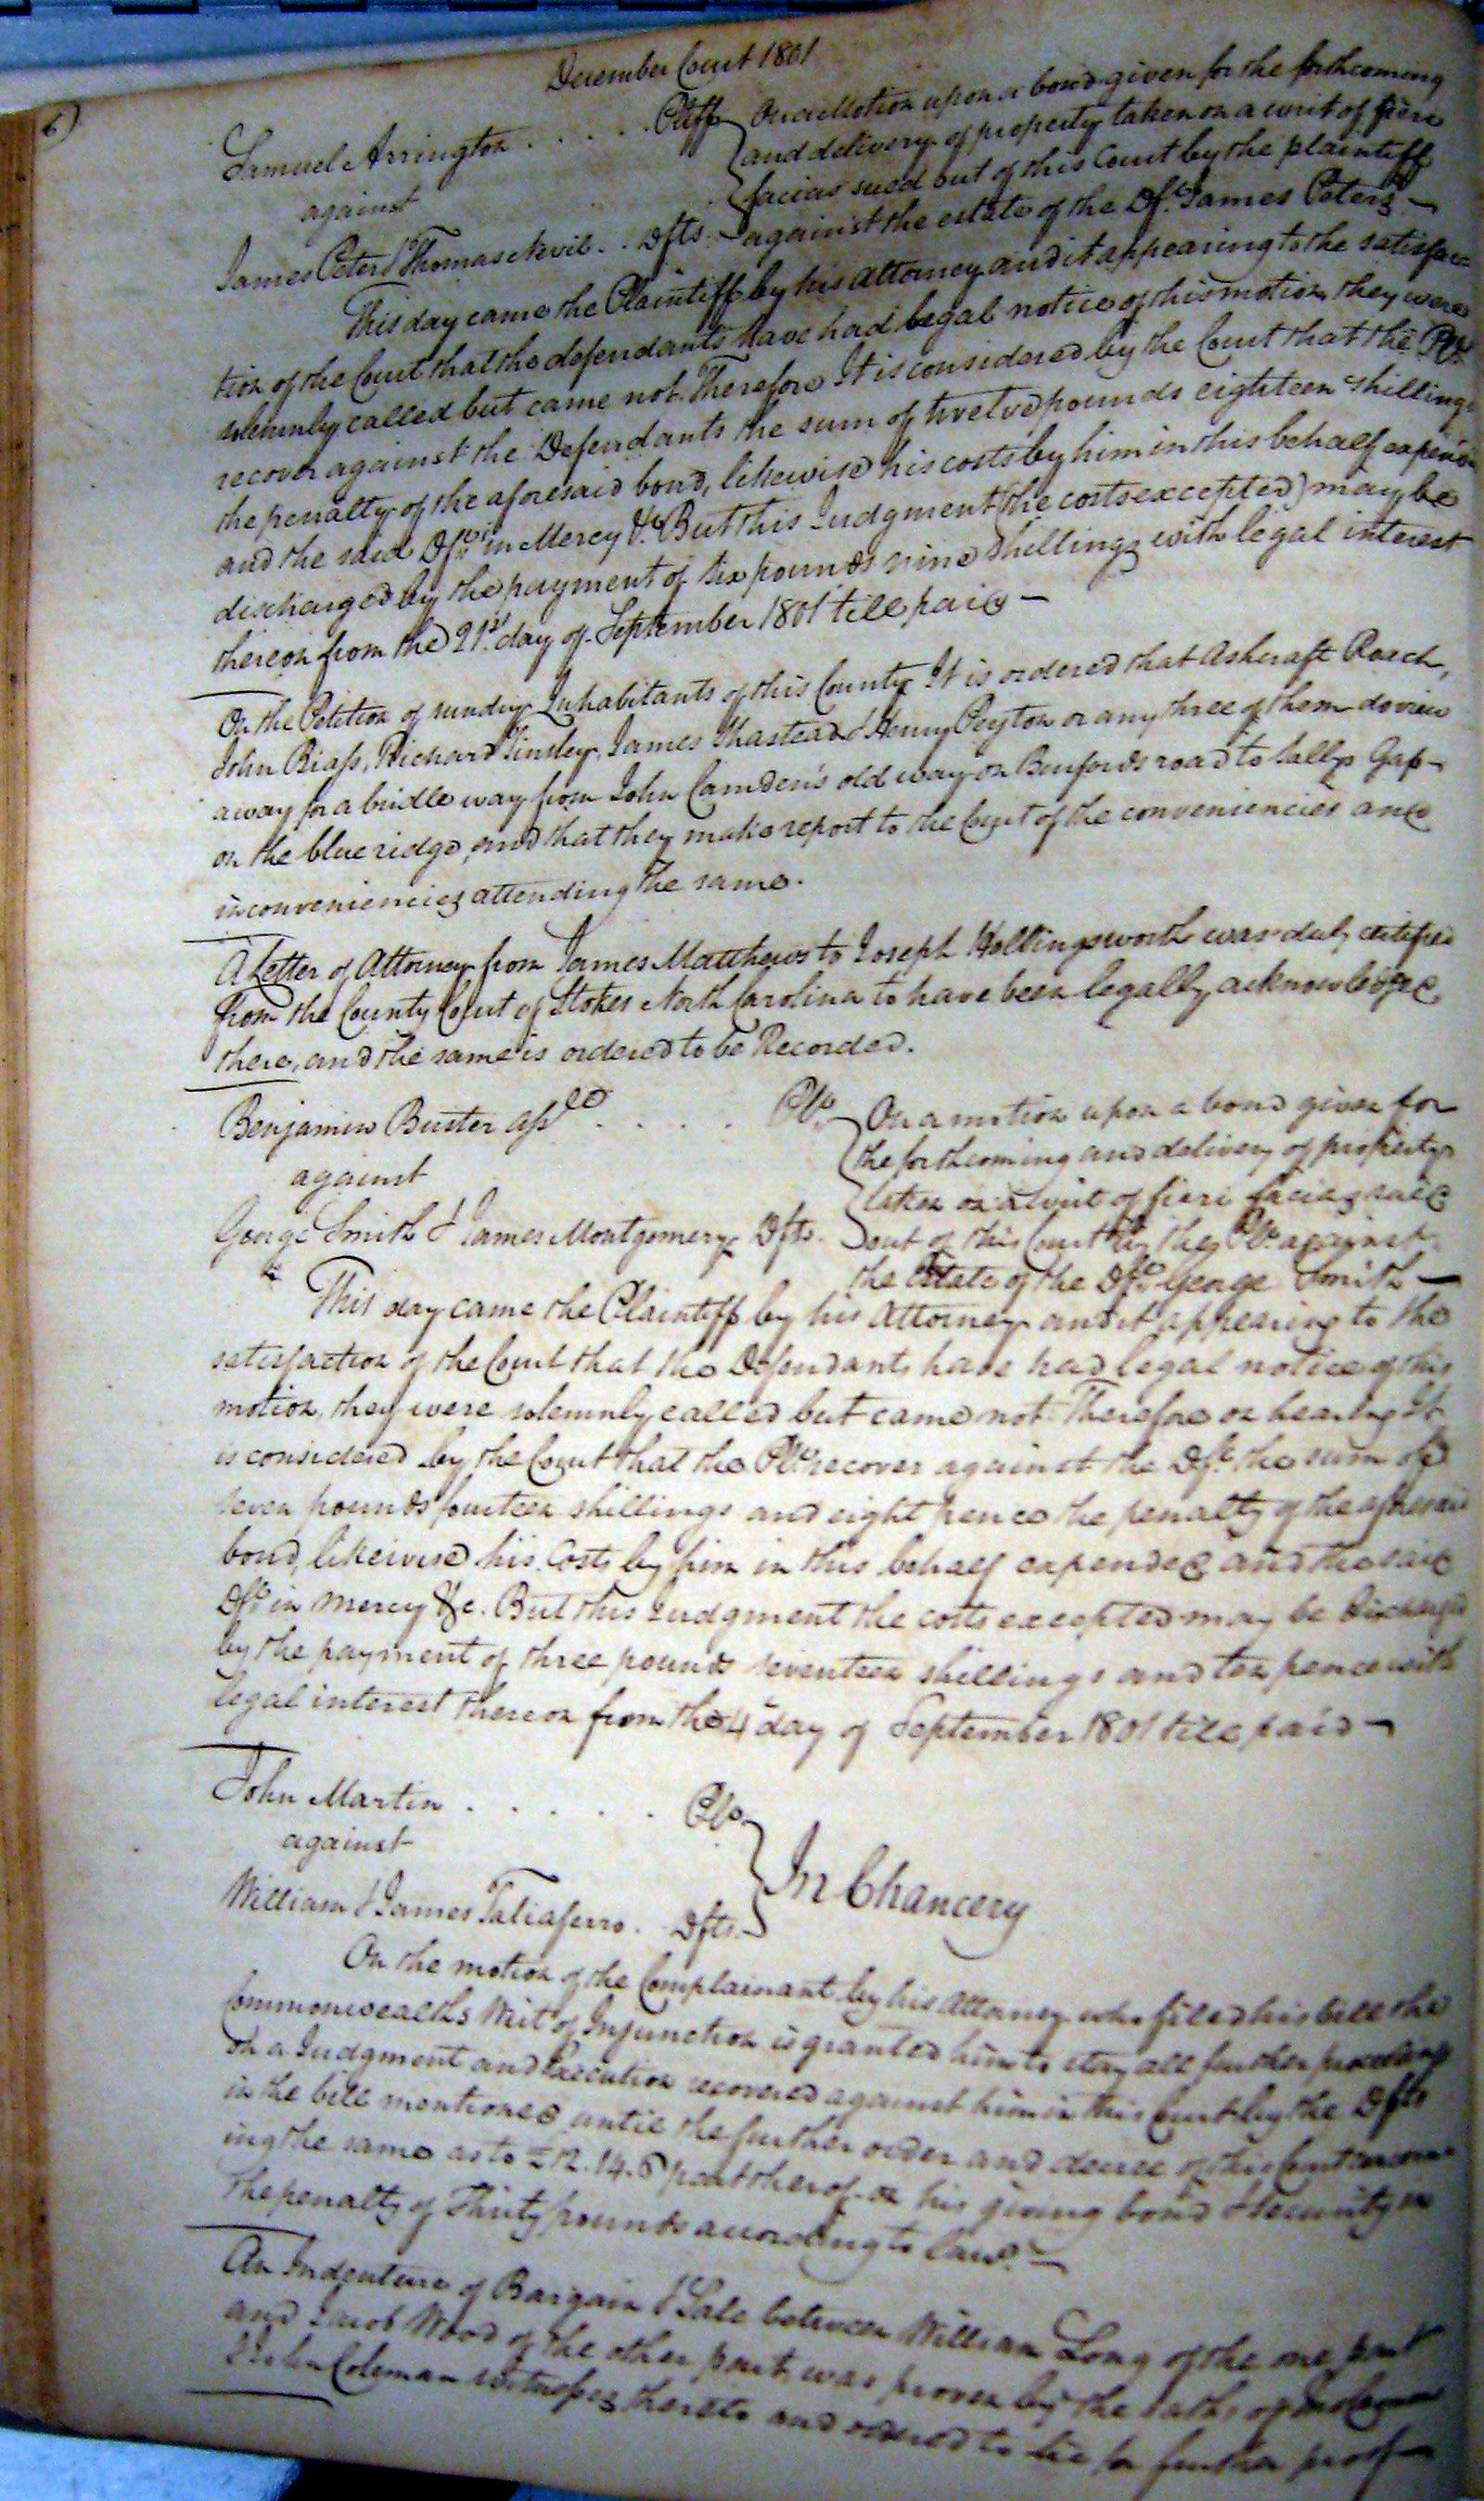 December Court 1801
6)
Samuel Arrington . . . . . Pltff
against
James Peters & Thomas Nevil . . Dfts.
On a Motion upon a bond given for the forthcoming
and delivery of property taken on a writ of fiere
facias sued out of this Court by the plaintiff
against the estate of the Dft. James Peters —
This day came the Plaintiff by his attorney and it appearing to the satisfac=
tion of the Court that the defendants have had legal notice of this motion, they were
solemnly called but came not. Therefore It is considered by the Court that the Plt.
recover against the Defendants the sum of twelve pounds eighteen shillings
the penalty of the aforesaid bond, likewise his costs by him in this behalf expended
and the said Dfts. in Mercy &c. But this Judgment (the costs excepted) may be
discharged by the payment of six pounds nine shillings with legal interest
thereon from the 21st. day of September 1801 till paid —
On the Petition of sundry Inhabitants of this County It is ordered that Ashcraft Roach,
John Biass, Richard Tinsley, James & Henry Peyton or any three of them do view
a way for a bridle way from John Camden's old way on Benfords road to Gap
on the blue ridge, and that they make report to the Court of the conveniencies and
inconveniencies attending the same.
A Letter of Attorney from James Matthews to Joseph Hollingsworth was duly certified
from the County Court of Stokes North Carolina to have been legally acknowledged
there, and the same is ordered to be Recorded.
Benjamin Buster assee . . . . . Plt.
against
George Smith & James Montgomery Dfts.
On a motion upon a bond given for
the forthcoming and delivery of property
taken on a writ of fieri facias sued
out of this Court by the Plt. against
the Estate of the Dft. George Smith —
This day came the Plaintiff by his Attorney and it appearing to the
satisfaction of the Court that the Defendants have had legal notice of this
motion, they were solemnly called but came not. Therefore on hearing It
is considered by the Court that the Plt. recover against the Dfts. the sum of
seven pounds fourteen shillings and eight pence the penalty of the aforesaid
bond, likewise his Costs by him in this behalf expended and the said
Dfts. in Mercy &c. But this Judgment the costs excepted may be discharged
by the payment of three pounds seventeen shillings and ten pence with
legal interest thereon from the 4 day of September 1801 till paid —
John Martin . . . . . . Plt.
against
William & James Taliaferro . Dfts.
In Chancery
On the motion of the Complainant by his Attorney who filed his bill the
Commonwealths Writ of Injunction is granted him to stay all further proceedings
on a Judgment and Execution recovered against him in this Court by the Dfts
in the bill mentioned until the further order and decree of this Court concern-
ing the same as to £12.14.6 part therof on his giving bond & Security in
the penalty of Thirty pounds according to law. —
An Indenture of Bargain & Sale between William Long of the one part
and Jacob Wood of the other part was proven by the oaths of
John Coleman witnesses thereto and ordered to lie for further proof —